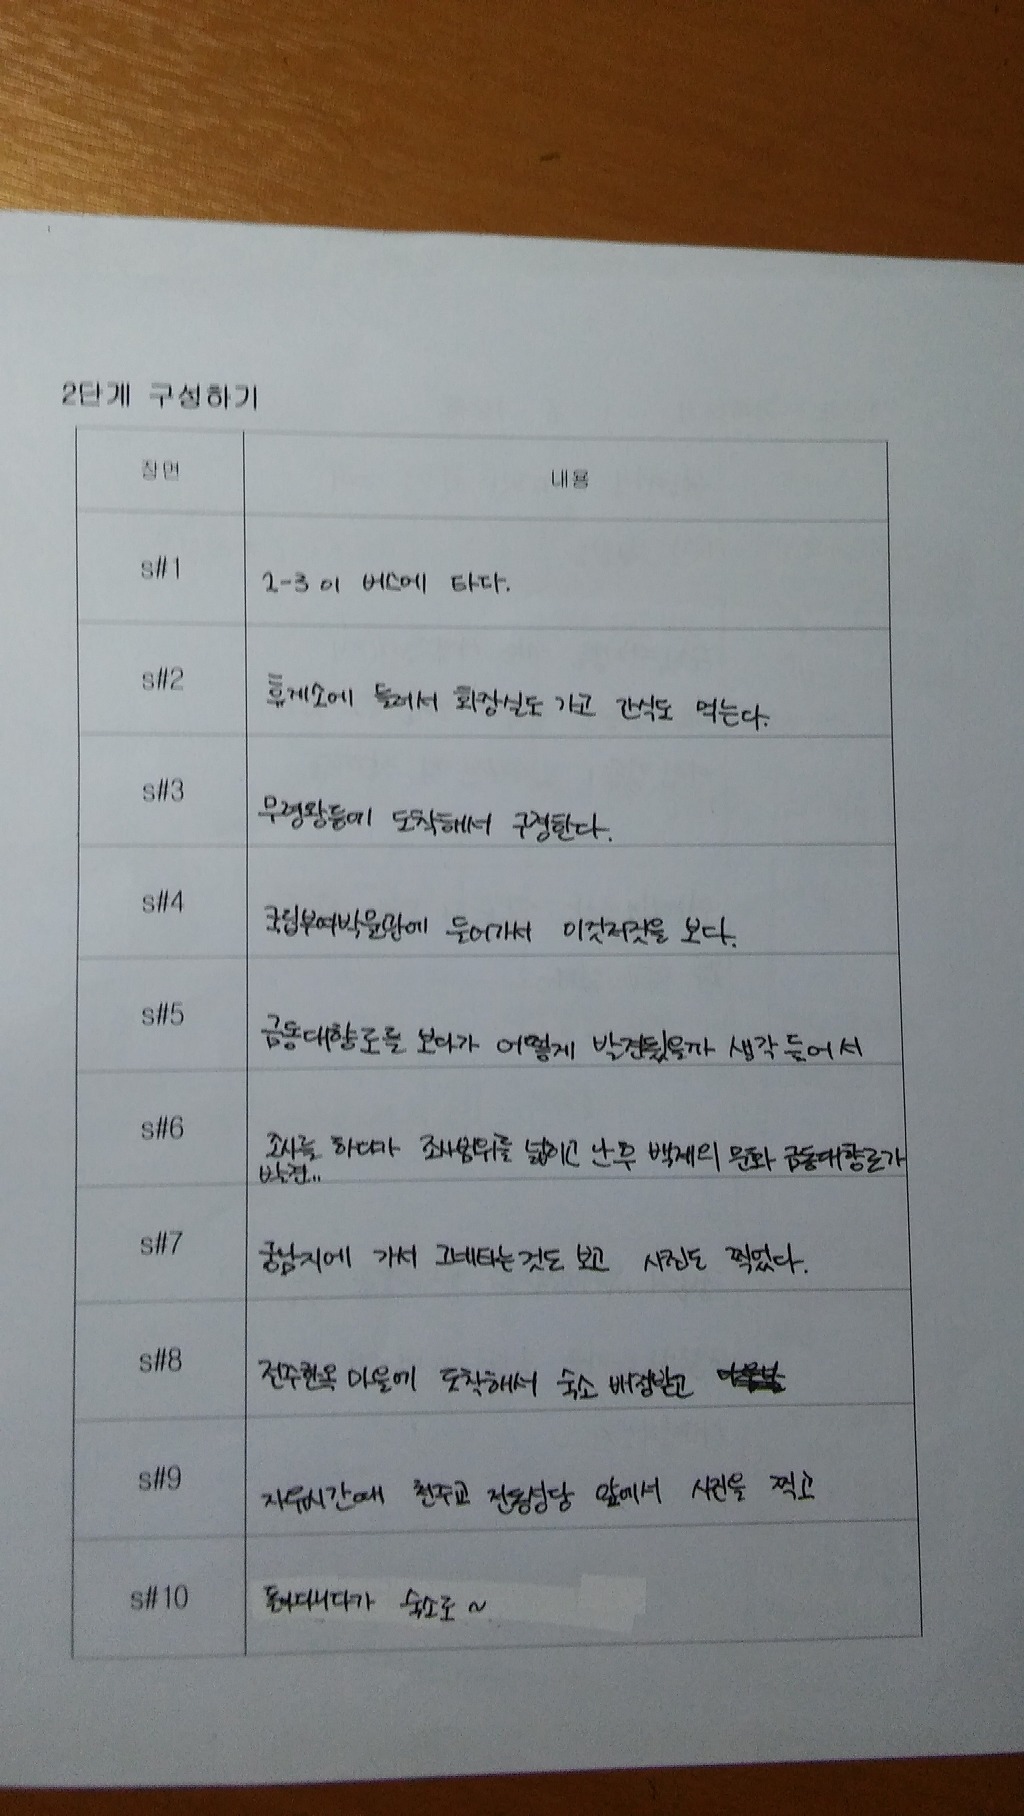 2단계 구성하기
장면 내용
s#1 2-3이 버스에 타다.
s#2 휴게소에 들려서 화장실도 가고 간식도 먹는다.
s#3 무령왕릉에 도착해서 구경한다.
s#4 국립부여박물관에 들어가서 이것저것을 보다.
s#5 금동대향로를 보다가 어떻게 발견됬을까 생각 들어서
s#6 조사를 하다가 조사범위를 넓히고 난후 백제의 문화 금동대향로가
발견..
s#7 궁남지에 가서 그네타는것도 보고 사진도 찍었다.
s#8 전주한옥마을에 도착해서 숙소 배정받고
s#9 자유시간때 천주교 전동성당 앞에서 사진을 찍고
s#10 돌아다니다가 숙소로~